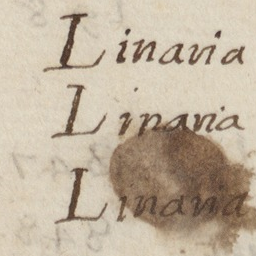 Linaria
Linaria
Linaria